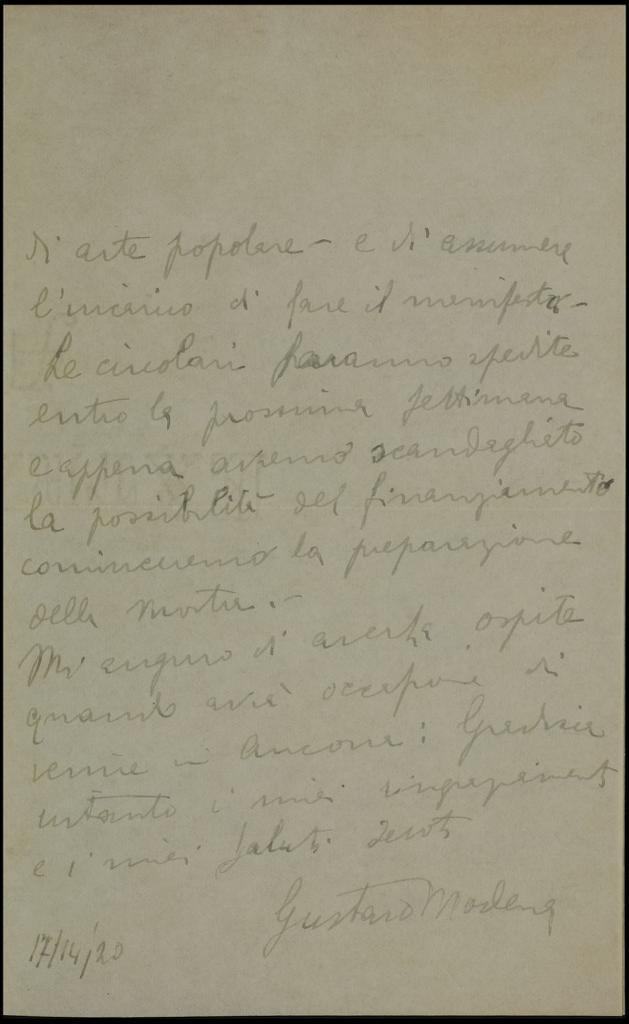 di arte popolare – e di assumere
l'incarico di fare il manifesto –
Le circolari saranno spedite
entro la prossima settimana
e appena avremo scandagliato
la possibilità del finanziamento
cominceremo la preparazione
della mostra. –
Mi auguro di averla ospite
quando avrà occasione di
venire in Ancona: Gradisca
intanto i miei ringraziamenti
e i miei saluti devoti
Gustavo Modena
17/14/20